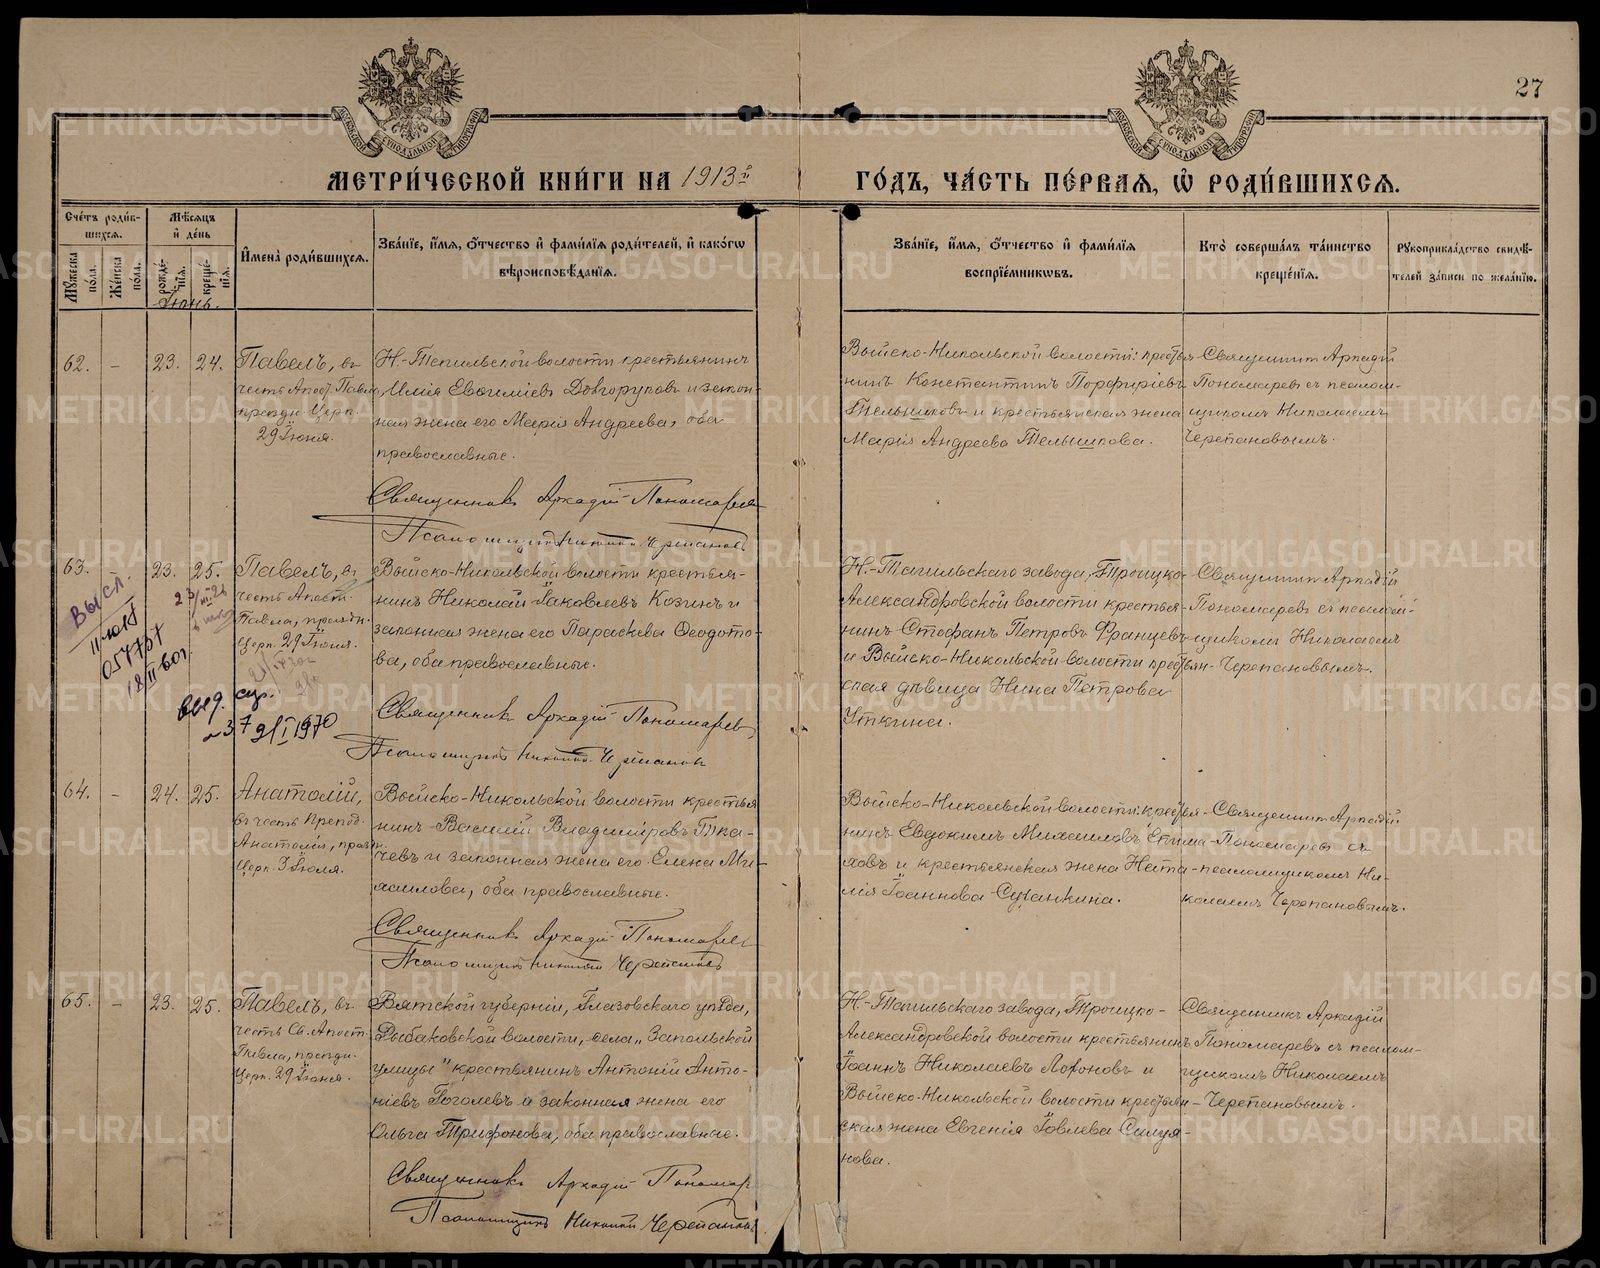 27
МЕТРИ́ЧЕСКОЙ КНИ́ГИ НА 1913й ГО́ДЪ, ЧА́СТЬ ПЕ́РВАЯ, Ѡ҆ РОДИ́ВШИХСЯ.
Сче́тъ роди́в-
шихся.
Му́жеска по́ла.
Же́нска по́ла.
Мѣ́сяцъ
и҆ де́нь
рожде́-
нїя.
креще́-
нїя.
Іюнь.
И҆мена̀ роди́вшихся.
Зва́нїе, и҆́мя, о҆́тчество и҆ фами́лїя роди́телей, и҆ како́гѡ
вѣроисповѣ́данїя.
Зва́нїе, и҆́мя, о҆́тчество и҆ фами́лїя
воспрїе́мникѡвъ.
Кто̀ соверша́лъ та́инство
креще́нїя.
Рукоприкла́дство свидѣ́-
телей за́писи по жела́нїю.
62. – 23. 24.
Павелъ, въ
честь Апост. Павла,
праздн. Церк.
29 Іюня.
Н.-Тагильской волости крестьянинъ
Илія Евѳиміевъ Долгоруковъ и закон-
ная жена его Марія Андреева, оба
православные.
Священникъ Аркадій Пономаревъ
Псаломщикъ Николай Черепановъ
Выйско-Никольской волости: крестья-
нинъ Константинъ Порфиріевъ
Тельшиковъ и крестьянская жена
Марія Андреева Тельшикова.
Священник Аркадій
Пономаревъ с псалом-
щикомъ Николаемъ
Черепановымъ.
63. 23. 25.
Высл.
054737
выд.
21/I 1970
Павелъ, въ
честь Апост.
Павла, праздн.
Церк. 29 Іюня.
Выйско-Никольской волости крестья-
нинъ Николай Іаковлевъ Козинъ и
законная жена его Параскева Ѳеодото-
ва, оба православные.
Священникъ Аркадій Пономаревъ
Псаломщикъ Николай Черепановъ
Н.-Тагильскаго завода, Троицко-
Александровской волости крестья-
нинъ Стефанъ Петровъ Францевъ
и Выйско-Никольской волости крестьян-
ская дѣвица Нина Петрова
Уткина.
Священник Аркадій
Пономаревъ с псалом-
щикомъ Николаемъ
Черепановымъ.
64. – 24. 25.
Анатолій,
въ честь Препод.
Анатолія, праздн.
Церк. 3 Іюля.
Выйско-Никольской волости крестья
нинъ Василій Владиміровъ Тка-
чевъ и законная жена его Елена Ми-
хаилова, оба православные.
Священникъ Аркадій Пономаревъ
Псаломщикъ Николай Черепановъ
Выйско-Никольской волости: крестья-
нинъ Евдокимъ Михаиловъ Епима-
ховъ и крестьянская жена Ната-
лія Іоаннова Суханкина.
Священник Аркадій
Пономаревъ съ
псаломщикомъ Ни-
колаемъ Черепановымъ.
65. – 23. 25.
Павелъ, въ
честь Св. Апост.
Павла, праздн.
Церк. 29 Іюня.
Вятской губерніи, Глазовскаго уѣзда,
Рыбаковской волости, села „Запольской
улицы" крестьянинъ Антоній Анто-
ніевъ Гоголевъ и законная жена его
Ольга Трифонова, оба православные.
Священникъ Аркадій Пономар
Псаломщикъ Николай Черепановъ
Н.-Тагильскаго завода, Троицко-
Александровской волости крестьянинъ
Іоаннъ Николаевъ Аофоновъ и
Выйско-Никольской волости крестьян-
ская жена Евгенія Іовлева Силуя-
нова.
Священникъ Аркадій
Пономаревъ съ псалом-
щикомъ Николаемъ
Черепановымъ.
METRIKI.GASO-URAL.RU